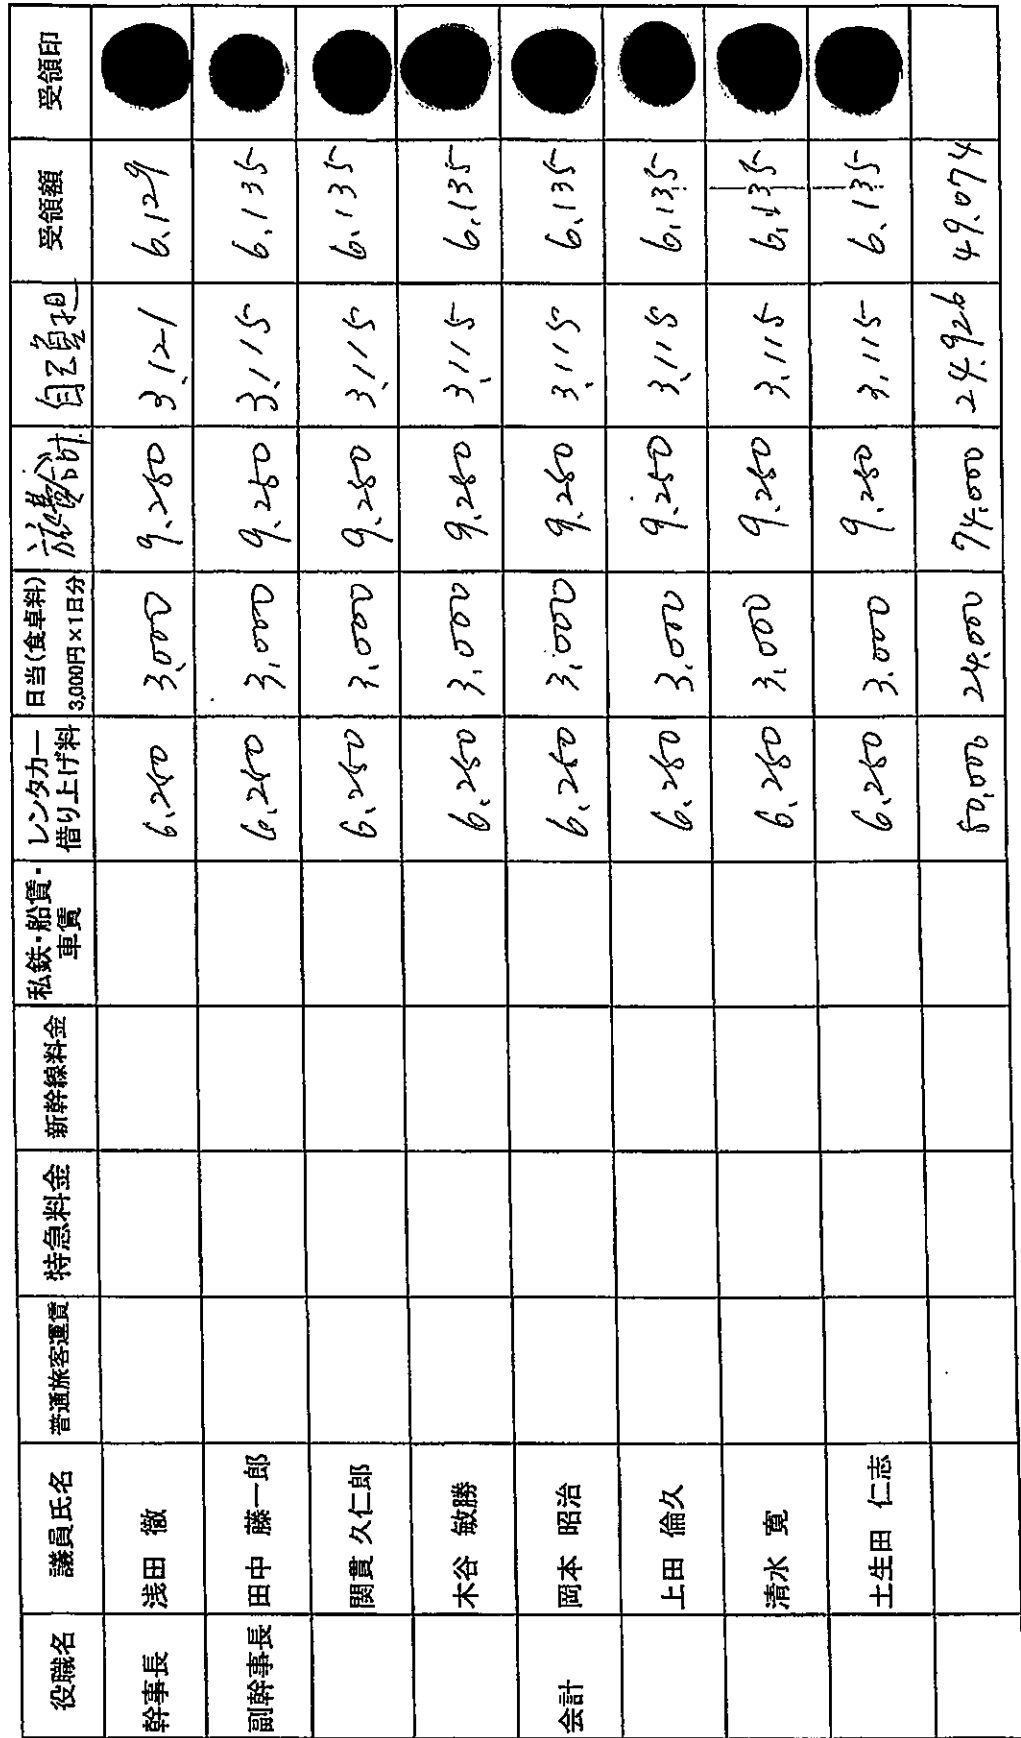 役職名 議員氏名 普通旅客運賃 特急料金 新幹線料金 私鉄・船賃・車賃 レンタカー借り上げ料 日当(食卓料) 3,000円×1日分 旅費合計 自己負担 受領額 受領印
幹事長 浅田 徹 6,250 3,000 9,250 3,121 6,129
副幹事長 田中 藤一郎 6,250 3,000 9,250 3,115 6,135
関貫 久仁郎 6,250 3,000 9,250 3,115 6,135
木谷 敏勝 6,250 3,000 9,250 3,115 6,135
会計 岡本 昭治 6,250 3,000 9,250 3,115 6,135
上田 倫久 6,250 3,000 9,250 3,115 6,135
清水 寛 6,250 3,000 9,250 3,115 6,135
土生田 仁志 6,250 3,000 9,250 3,115 6,135
50,000 24,000 74,000 24,926 49,074